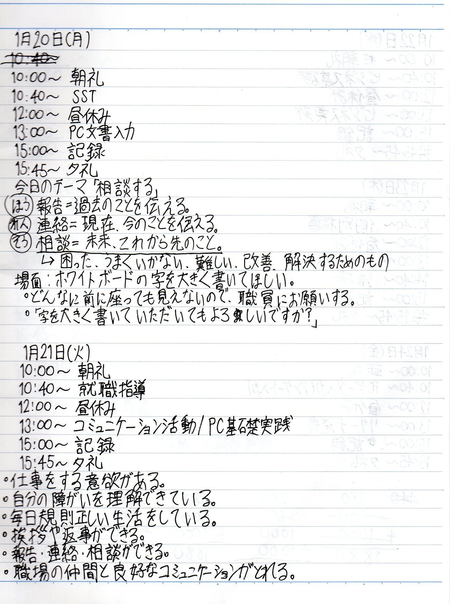 1月20日(月)
10:40~
10:00~ 朝礼
10:40~ SST
12:00~ 昼休み
13:00~ PC文書入力
15:00~ 記録
15:45~ 夕礼
今日のテーマ「相談する」
ほう 報告=過去のことを伝える。
れん 連絡=現在、今のことを伝える。
そう 相談=未来、これから先のこと。
↳ 困った、うまくいかない、難しい、改善、解決するためのもの
場面:ホワイトボードの字を大きく書いてほしい。
・どんなに前に座っても見えないので、職員にお願いする。
・「字を大きく書いていただいてもよろしいですか?」
1月21日(火)
10:00~ 朝礼
10:40~ 就職指導
12:00~ 昼休み
13:00~ コミュニケーション活動/PC基礎実践
15:00~ 記録
15:45~ 夕礼
・仕事をする意欲がある。
・自分の障がいを理解できている。
・毎日規則正しい生活をしている。
・挨拶や返事ができる。
・報告・連絡・相談ができる。
・職場の仲間と良好なコミュニケーションがとれる。